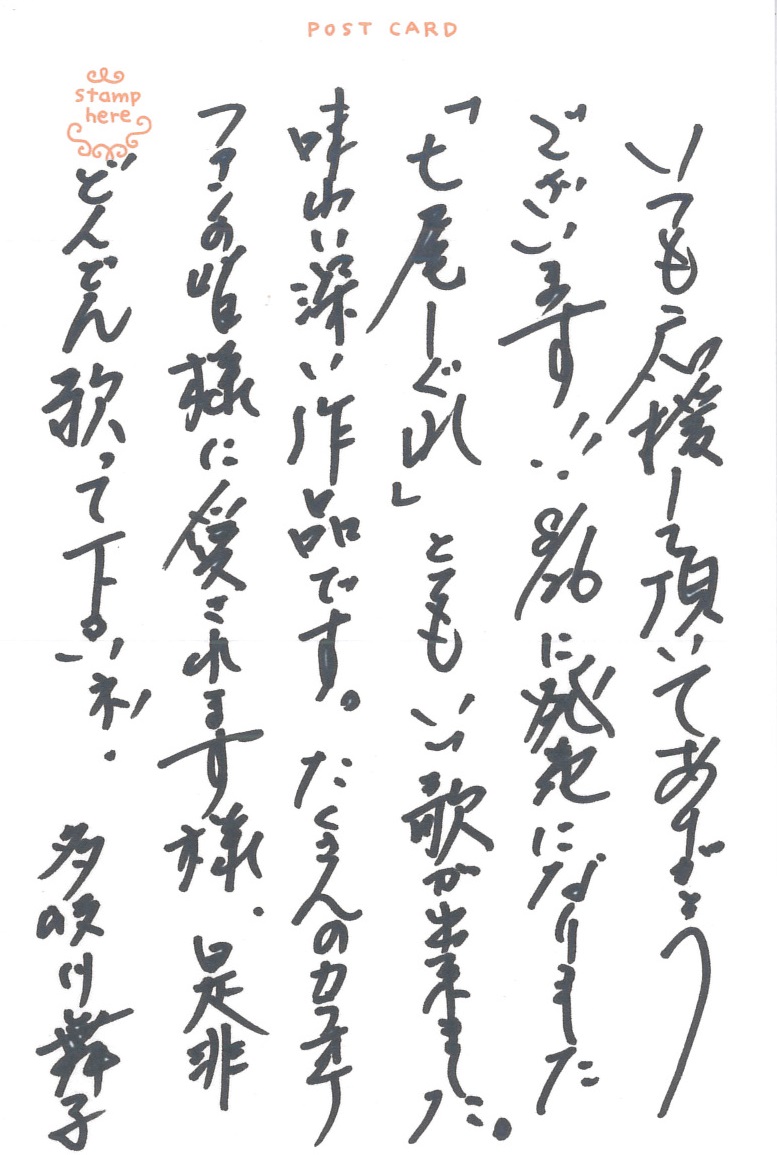 POST CARD
stamp
here
いつも応援して頂いてありがとう
ございます!! 8/26に発売になりました
「七尾しぐれ」とても いい歌が出来ました。
味わい深い作品です。 たくさんのカラオケ
ファンの皆様に愛されます様、是非
どんどん歌って下さいネ!
多岐川舞子